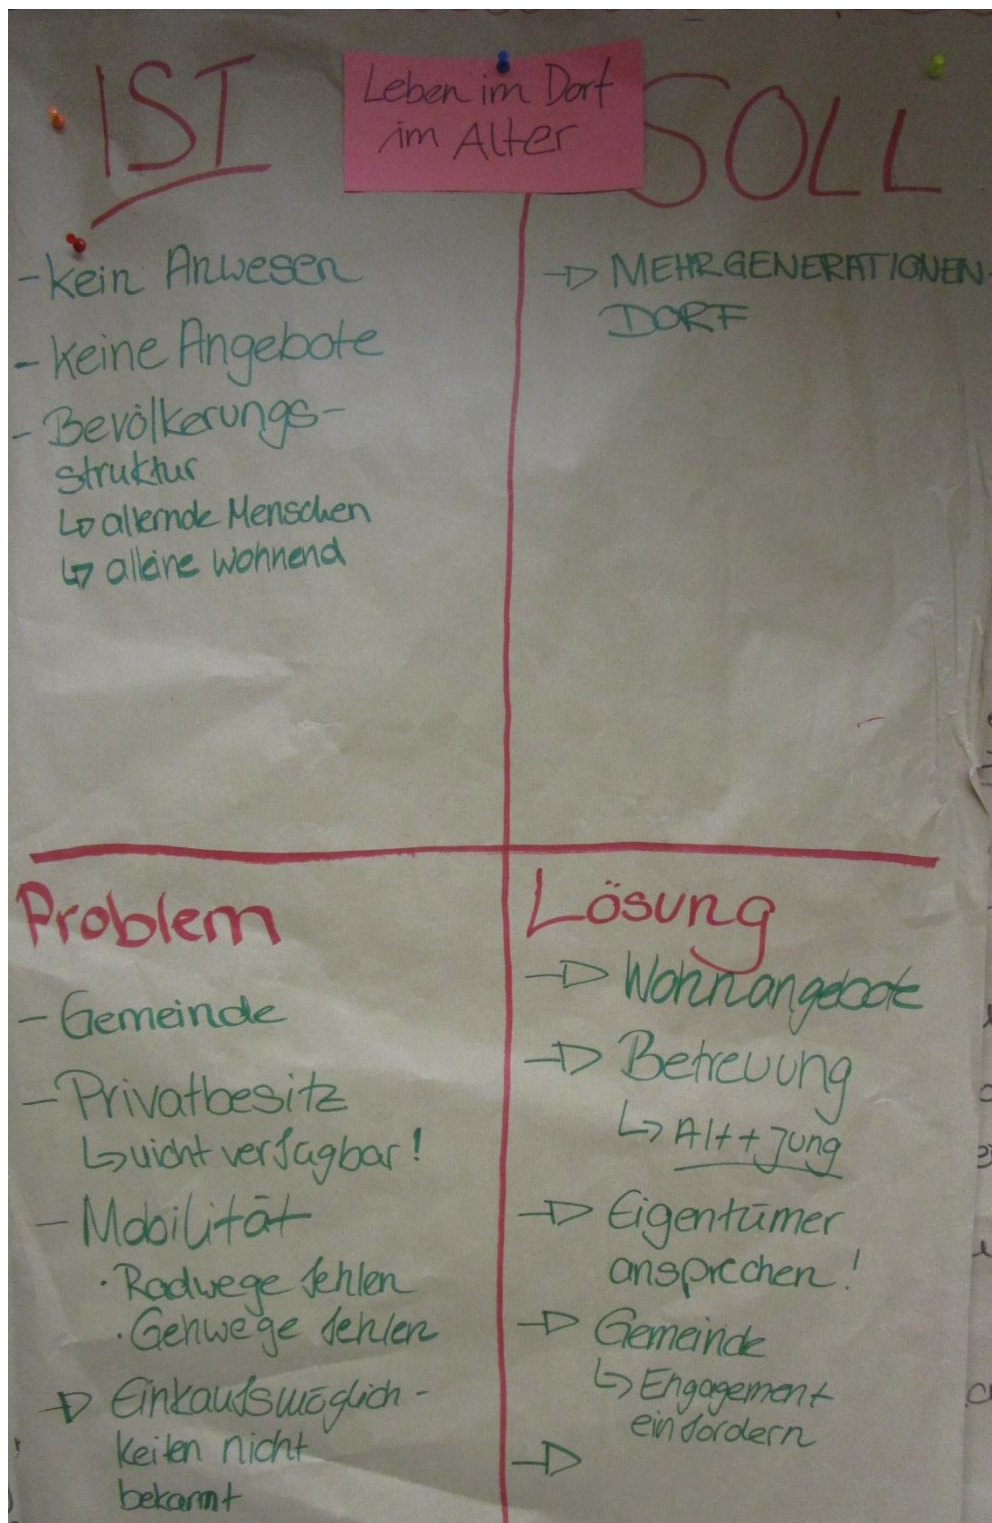 Leben im Dorf
im Alter
IST
- kein Anwesen
- keine Angebote
- Bevölkerungs-
struktur
↳ alternde Menschen
↳ alleine wohnend
SOLL
→ MEHRGENERATIONEN-
DORF
Problem
- Gemeinde
- Privatbesitz
↳ nicht verfügbar!
- Mobilität
· Radwege fehlen
· Gehwege fehlen
→ Einkaufsmöglich-
keiten nicht
bekannt
Lösung
→ Wohnangebote
→ Betreuung
↳ Alt + Jung
→ Eigentümer
ansprechen!
→ Gemeinde
↳ Engagement
einfordern
→